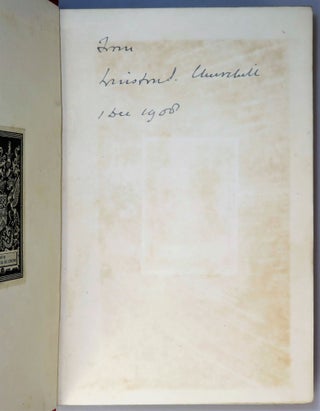 From
Winston S. Churchill
1 Dec 1908